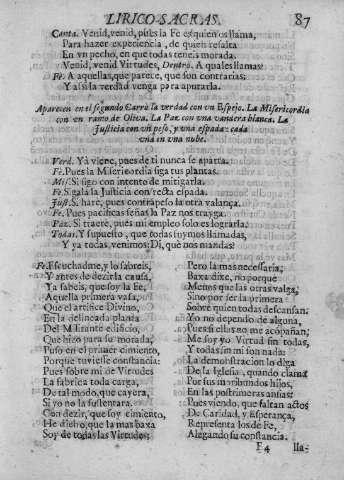 LIRICO-SACRAS. 87
Canta. Venid, venid, pues la Fe es quien os llama,
Para hazer experiencia, de quien resalta
En vn pecho, en que todas teneis morada.
Venid, venid Virtudes, Dentro. A quales llamas?
Fe. A aquellas, que parece, que son contrarias;
Y assi la verdad venga para apurarla.
Aparecen en el segundo Carro la verdad con vn Espejo. La Misericordia
con vn ramo de Oliva. La Paz con vna vandera blanca. La
Justicia con vn peso, y vna espada: cada
vna en vna nube.
Verd. Ya viene, pues de ti nunca se aparta.
Fe. Pues la Misericordia siga tus plantas.
Mis. Si sigo con intento de mitigarla.
Fe. Salga la Justicia con recta espada.
Just. Si haré, pues contrapeso la otra valança.
Fe. Pues pacificas señas la Paz nos trayga.
Paz. Si traeré, pues mi empleo solo es lograrla.
Todas. Y supuesto, que todas suymos llamadas,
Y ya todas, venimos: Di, què nos mandas?
Fe. Escuchadme, y lo sabreis,
Y antes de dezir la causa,
Ya sabeis, que soy la Fe,
Aquella primera vasa,
Que el artifice Divino,
En la delineada planta
Del Militante edificio,
Que hizo para su morada,
Puso en el primer cimiento,
Porque tuviesse constancia:
Pues sobre mi de Virtudes
La fabrica toda carga,
De tal modo, que cayera,
Si yo no la sustentara.
Con dezir, que soy cimiento,
He dicho, que la mas baxa
Soy de todas las Virtudes;
Pero la mas necessaria;
Baxa dixe, no porque
Menos que las otras valga,
Sino por ser la primera
Sobre quien todas descansan:
Yo no dependo de alguna,
Pues si ellas no me acompañan,
Me soy yo Virtud sin todas,
Y todas sin mi son nada:
La demonstracion lo diga
De la Iglesia, quando clama
Por sus moribundos hijos,
En las postrimeras ansias:
Pues viendo, que faltan actos
De Caridad, y Esperança,
Representa los de Fe,
Alegando su constancia.
F4 lla-